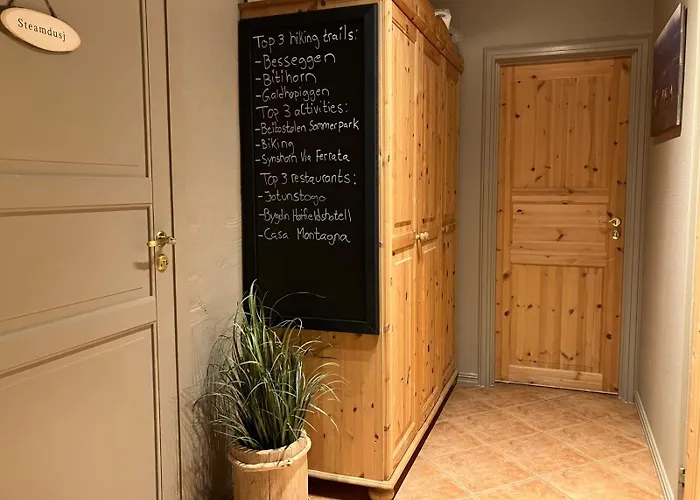 Steamdusj
Top 3 hiking trails:
- Besseggen
- Bitihorn
- Galdhøpiggen
Top 3 activities:
- Beitostølen Sommerpark
- Biking
- Synshorn Via Ferrata
Top 3 restaurants:
- Jotunstogo
- Bygdin Høifjeldshotell
- Casa Montagna